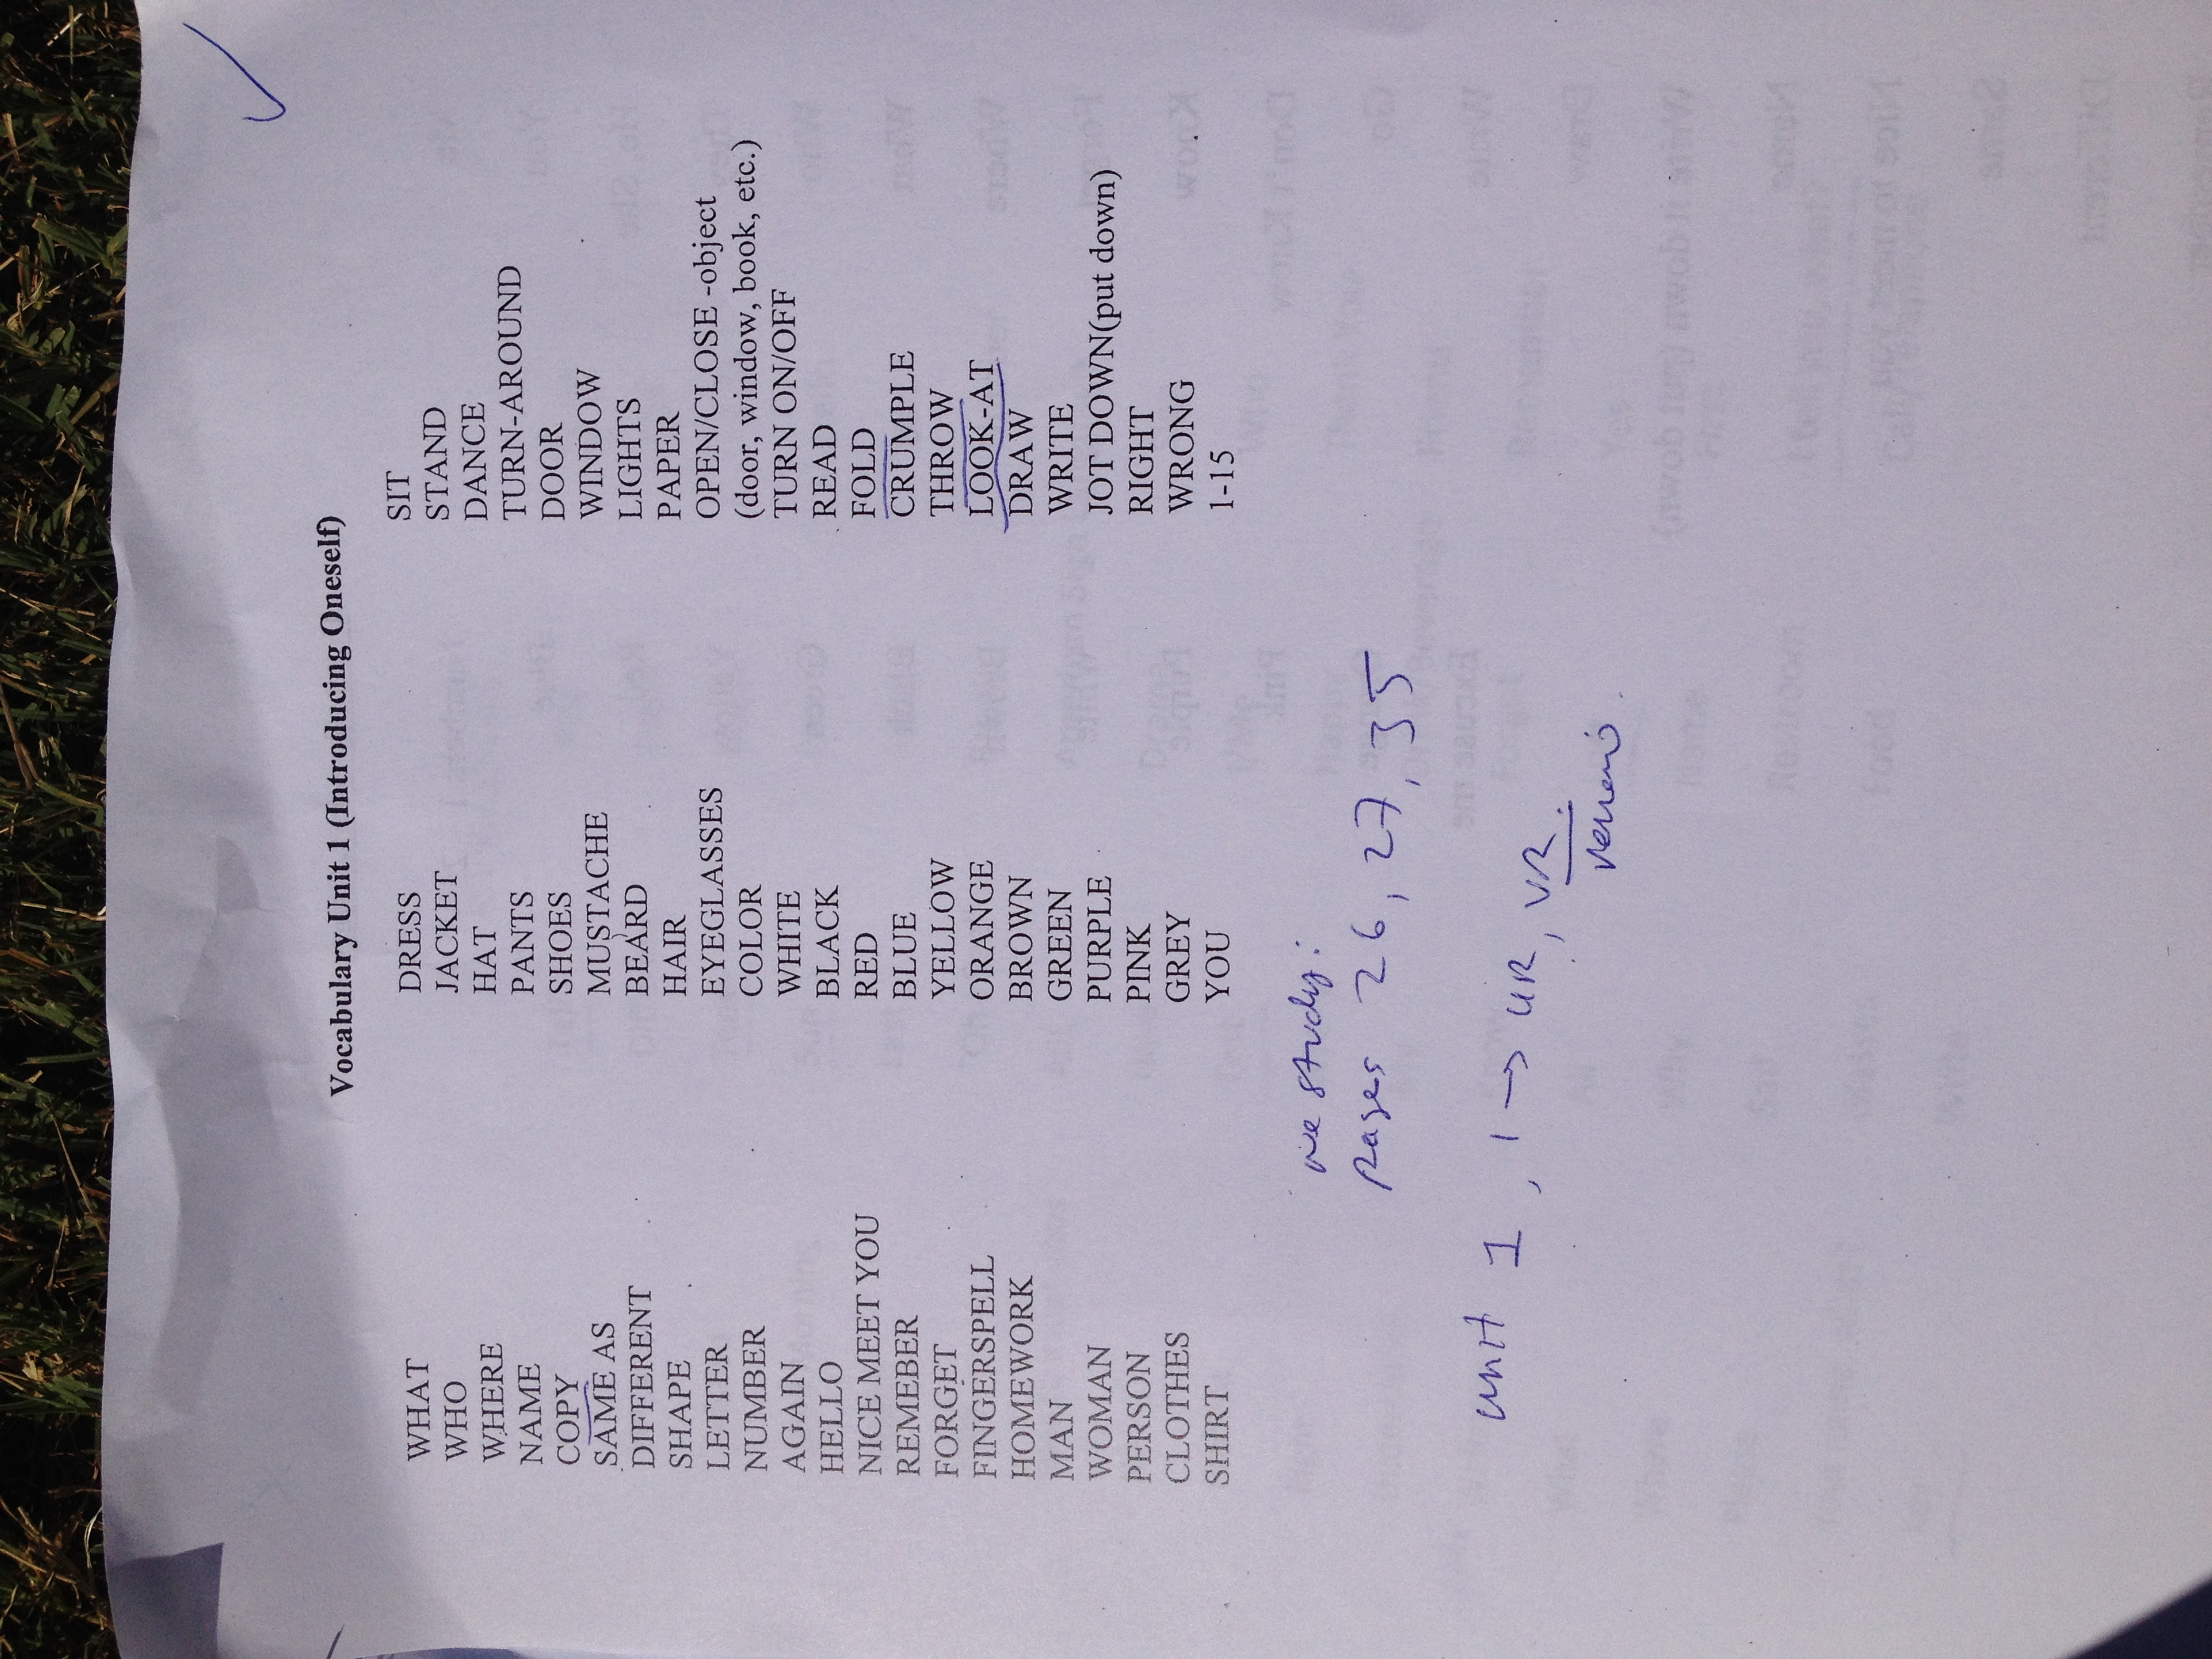 Vocabulary Unit 1 (Introducing Oneself)
WHAT
WHO
WHERE
NAME
COPY
SAME AS
DIFFERENT
SHAPE
LETTER
NUMBER
AGAIN
HELLO
NICE MEET YOU
REMEBER
FORGET
FINGERSPELL
HOMEWORK
MAN
WOMAN
PERSON
CLOTHES
SHIRT
DRESS
JACKET
HAT
PANTS
SHOES
MUSTACHE
BEARD
HAIR
EYEGLASSES
COLOR
WHITE
BLACK
RED
BLUE
YELLOW
ORANGE
BROWN
GREEN
PURPLE
PINK
GREY
YOU
SIT
STAND
DANCE
TURN-AROUND
DOOR
WINDOW
LIGHTS
PAPER
OPEN/CLOSE -object
(door, window, book, etc.)
TURN ON/OFF
READ
FOLD
CRUMPLE
THROW
LOOK-AT
DRAW
WRITE
JOT DOWN(put down)
RIGHT
WRONG
1-15
we study:
pages 26, 27, 35
unit 1, 1 → UR, VR.